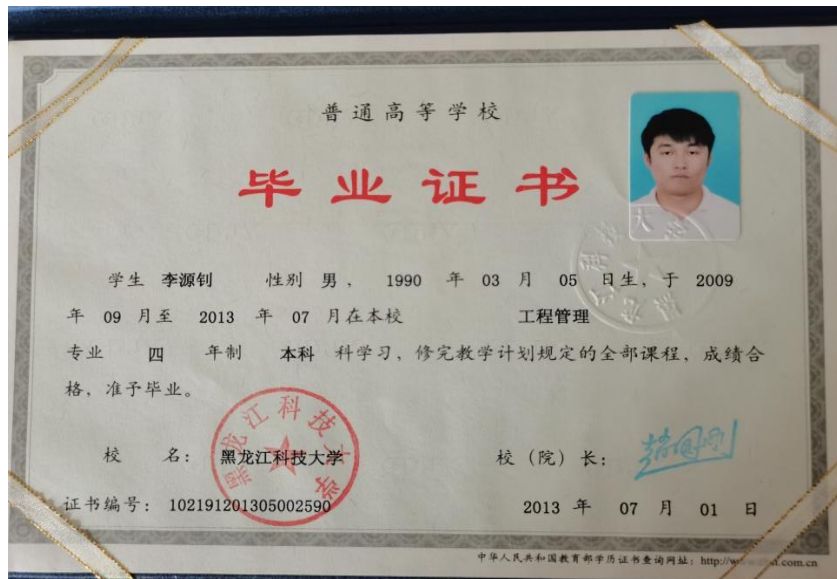 普通高等学校
毕业证书
学生 李源钊 性别 男， 1990 年 03 月 05 日生，于 2009
年 09 月至 2013 年 07 月在本校 工程管理
专业 四 年制 本科 科学习，修完教学计划规定的全部课程，成绩合
格，准予毕业。
校 名： 黑龙江科技大学 校（院）长：
黑龙江科技大学
证书编号： 102191201305002590 2013 年 07 月 01 日
中华人民共和国教育部学历证书查询网址：http://www.com.cn